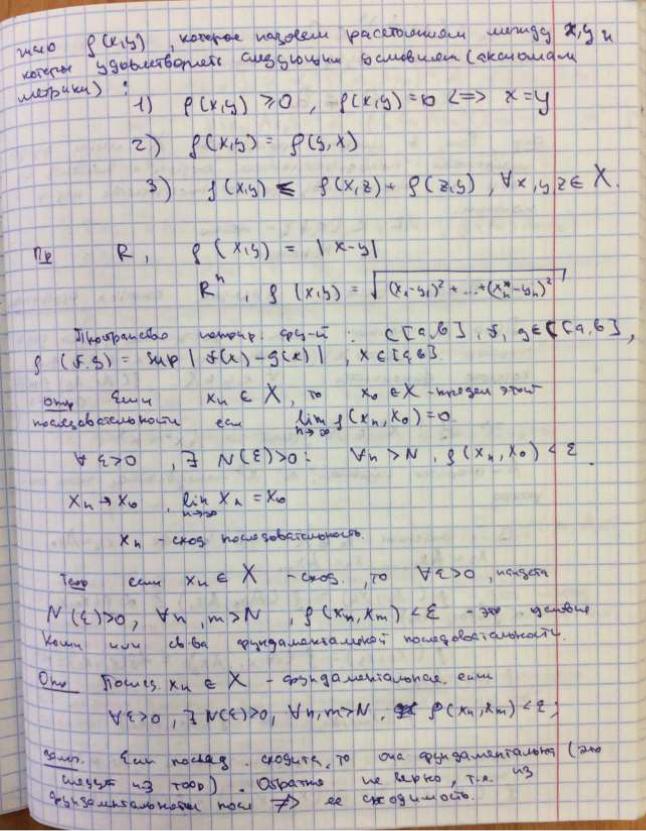 число ρ(x,y), которое назовем расстоянием между x,y и
которое удовлетворяет следующим условием (аксиомам
метрики):
1) ρ(x,y) ≥ 0, ρ(x,y) = 0 <=> x = y
2) ρ(x,y) = ρ(y,x)
3) ρ(x,y) ≤ ρ(x,z) + ρ(z,y), ∀x,y,z ∈ X.
Пр R, ρ(x,y) = |x-y|
Rⁿ, ρ(x,y) = √((x₁-y₁)² + ... + (xₙ-yₙ)²)
Пространство непрер. фун-й: C[a,b], f, g ∈ C[a,b],
ρ(f,g) = sup |f(x) - g(x)|, x ∈ [a,b]
Опр Если xₙ ∈ X, то x₀ ∈ X - предел этой
последовательности если lim n→∞ ρ(xₙ, x₀) = 0
∀ε>0, ∃ N(ε)>0: ∀n > N, ρ(xₙ, x₀) < ε.
xₙ → x₀, lim n→∞ xₙ = x₀
xₙ - сход последовательность.
Теор если xₙ ∈ X - сход., то ∀ε>0, найдется
N(ε)>0, ∀n, m>N, ρ(xₙ, xₘ) < ε - это условие
Коши или св-ва фундаментальной последовательности.
Опр Послед. xₙ ∈ X - фундаментальная, если
∀ε>0, ∃ N(ε)>0, ∀n,m>N, ρ(xₙ, xₘ) < ε;
Замеч. Если послед. сходится, то она фундаментальна (это
следует из теор). Обратно не верно, т.к. из
фундаментальности посл ≠> ее сходимость.